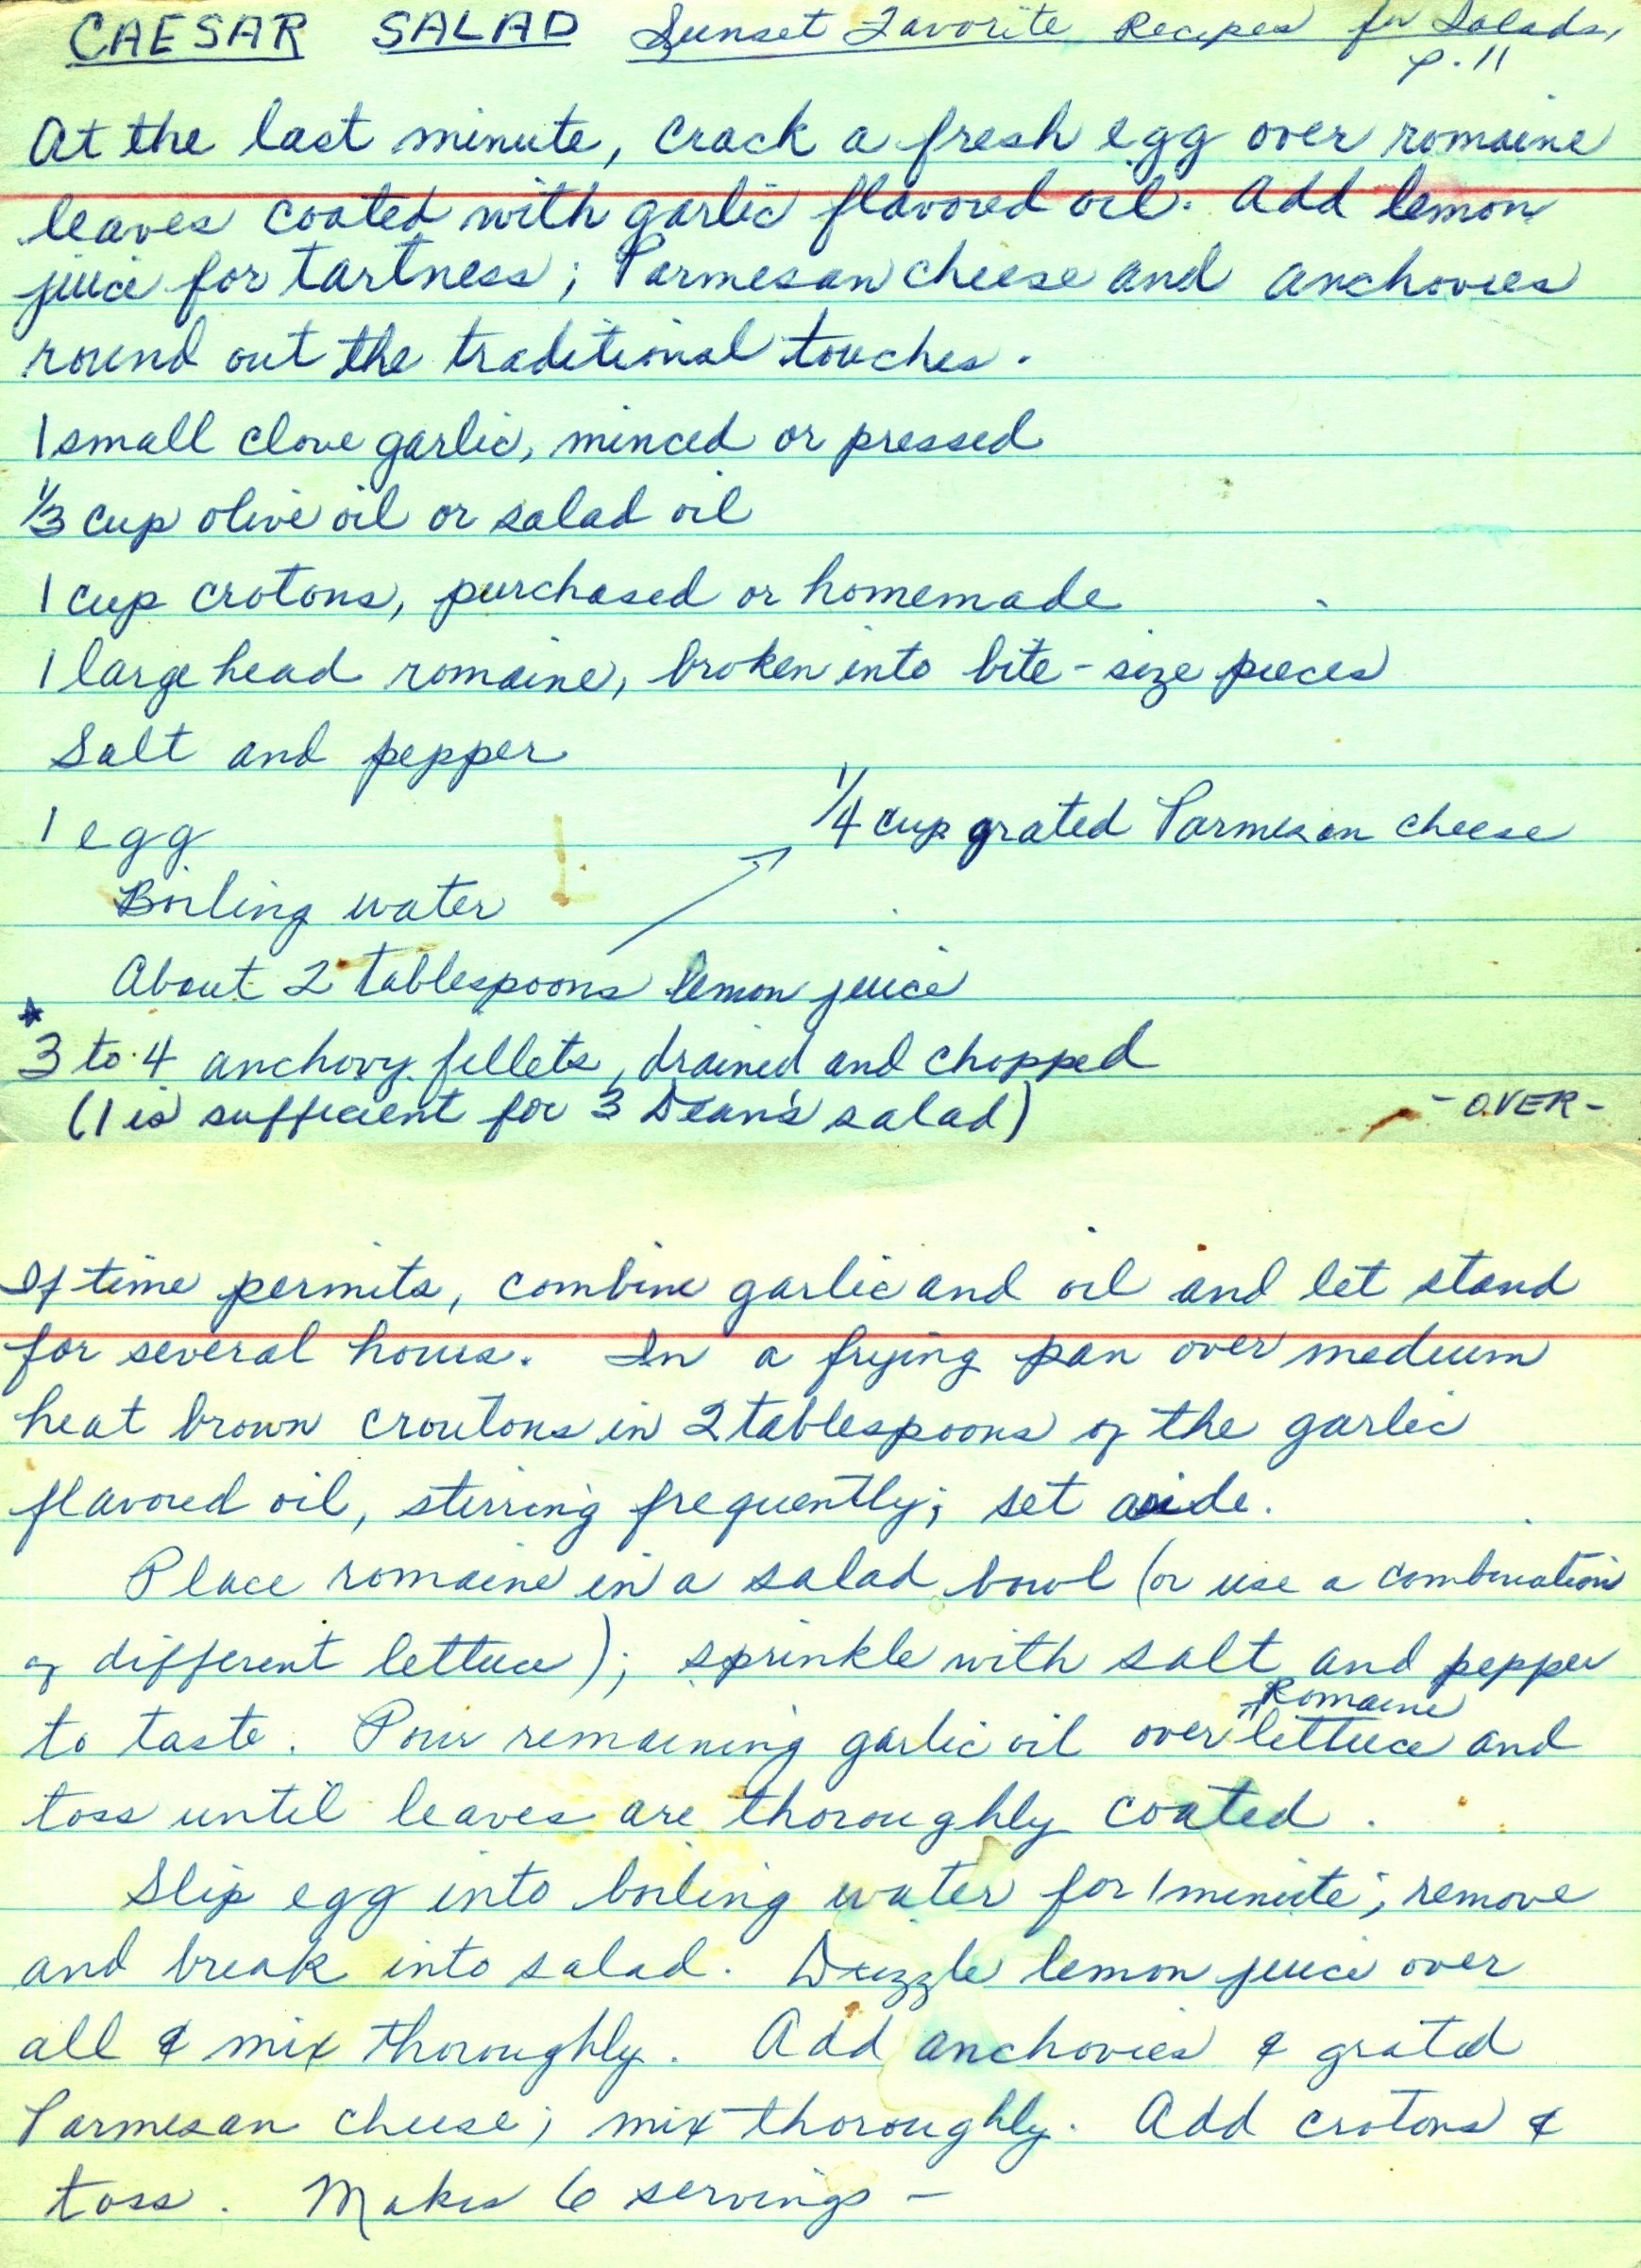 CAESAR SALAD Sunset Favorite Recipes for Salads,
p. 11
At the last minute, crack a fresh egg over romaine
leaves coated with garlic flavored oil. Add lemon
juice for tartness; Parmesan cheese and anchovies
round out the traditional touches.
1 small clove garlic, minced or pressed
1/3 cup olive oil or salad oil
1 cup crotons, purchased or homemade
1 large head romaine, broken into bite-size pieces
Salt and pepper
1 egg
1/4 cup grated Parmesan cheese
Boiling water
About 2 tablespoons lemon juice
* 3 to 4 anchovy fillets, drained and chopped
(1 is sufficient for 3 Dean's salad)
- OVER -
If time permits, combine garlic and oil and let stand
for several hours. In a frying pan over medium
heat brown croutons in 2 tablespoons of the garlic
flavored oil, stirring frequently; set aside.
Place romaine in a salad bowl (or use a combination
of different lettuce); sprinkle with salt and pepper
Romaine
to taste. Pour remaining garlic oil over lettuce and
toss until leaves are thoroughly coated.
Slip egg into boiling water for 1 minute; remove
and break into salad. Drizzle lemon juice over
all & mix thoroughly. Add anchovies & gratd
Parmesan cheese; mix thoroughly. Add crotons &
toss. Makes 6 servings -